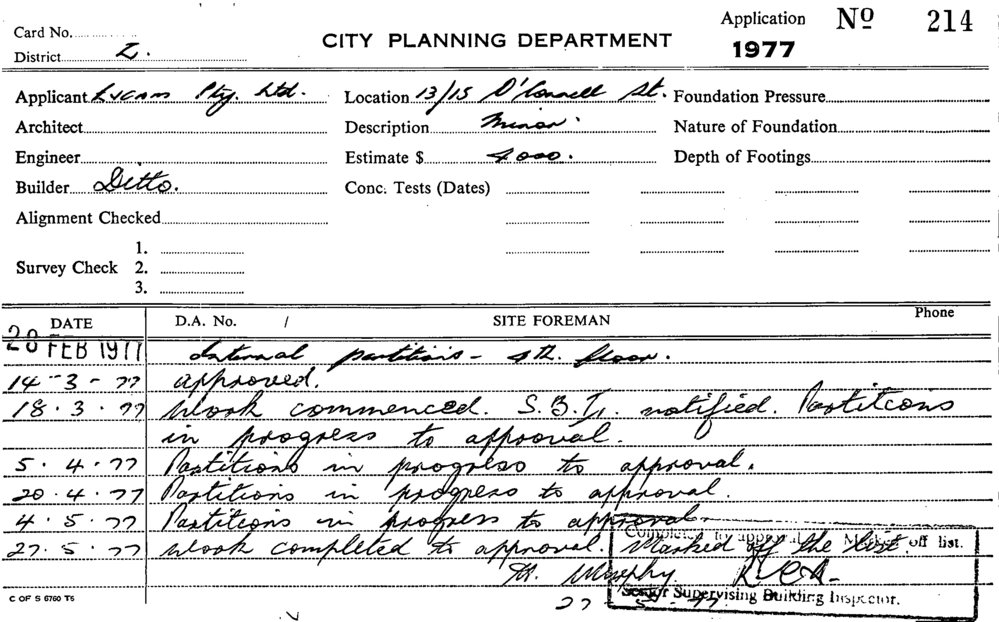 Card No.
District Z.
CITY PLANNING DEPARTMENT
Application Nº 214
1977
Applicant Lycam Pty. Ltd. Location 13/15 O'Connell St. Foundation Pressure
Architect Description Minor. Nature of Foundation
Engineer Estimate $ 4000. Depth of Footings
Builder Ditto. Conc. Tests (Dates)
Alignment Checked
1.
Survey Check 2.
3.
DATE D.A. No. / SITE FOREMAN Phone
28 FEB 1977 Internal partitions - 4th. floor.
14-3-77 approved.
18.3.77 Work commenced. S.B.I. notified. Partitions
in progress to approval.
5.4.77 Partitions in progress to approval.
20.4.77 Partitions in progress to approval.
4.5.77 Partitions in progress to approval.
27.5.77 Work completed to approval. Marked off the list.
Completed to approval Marked off list.
M. Murphy
Senior Supervising Building Inspector.
27-5-77
C OF S 6760 T5